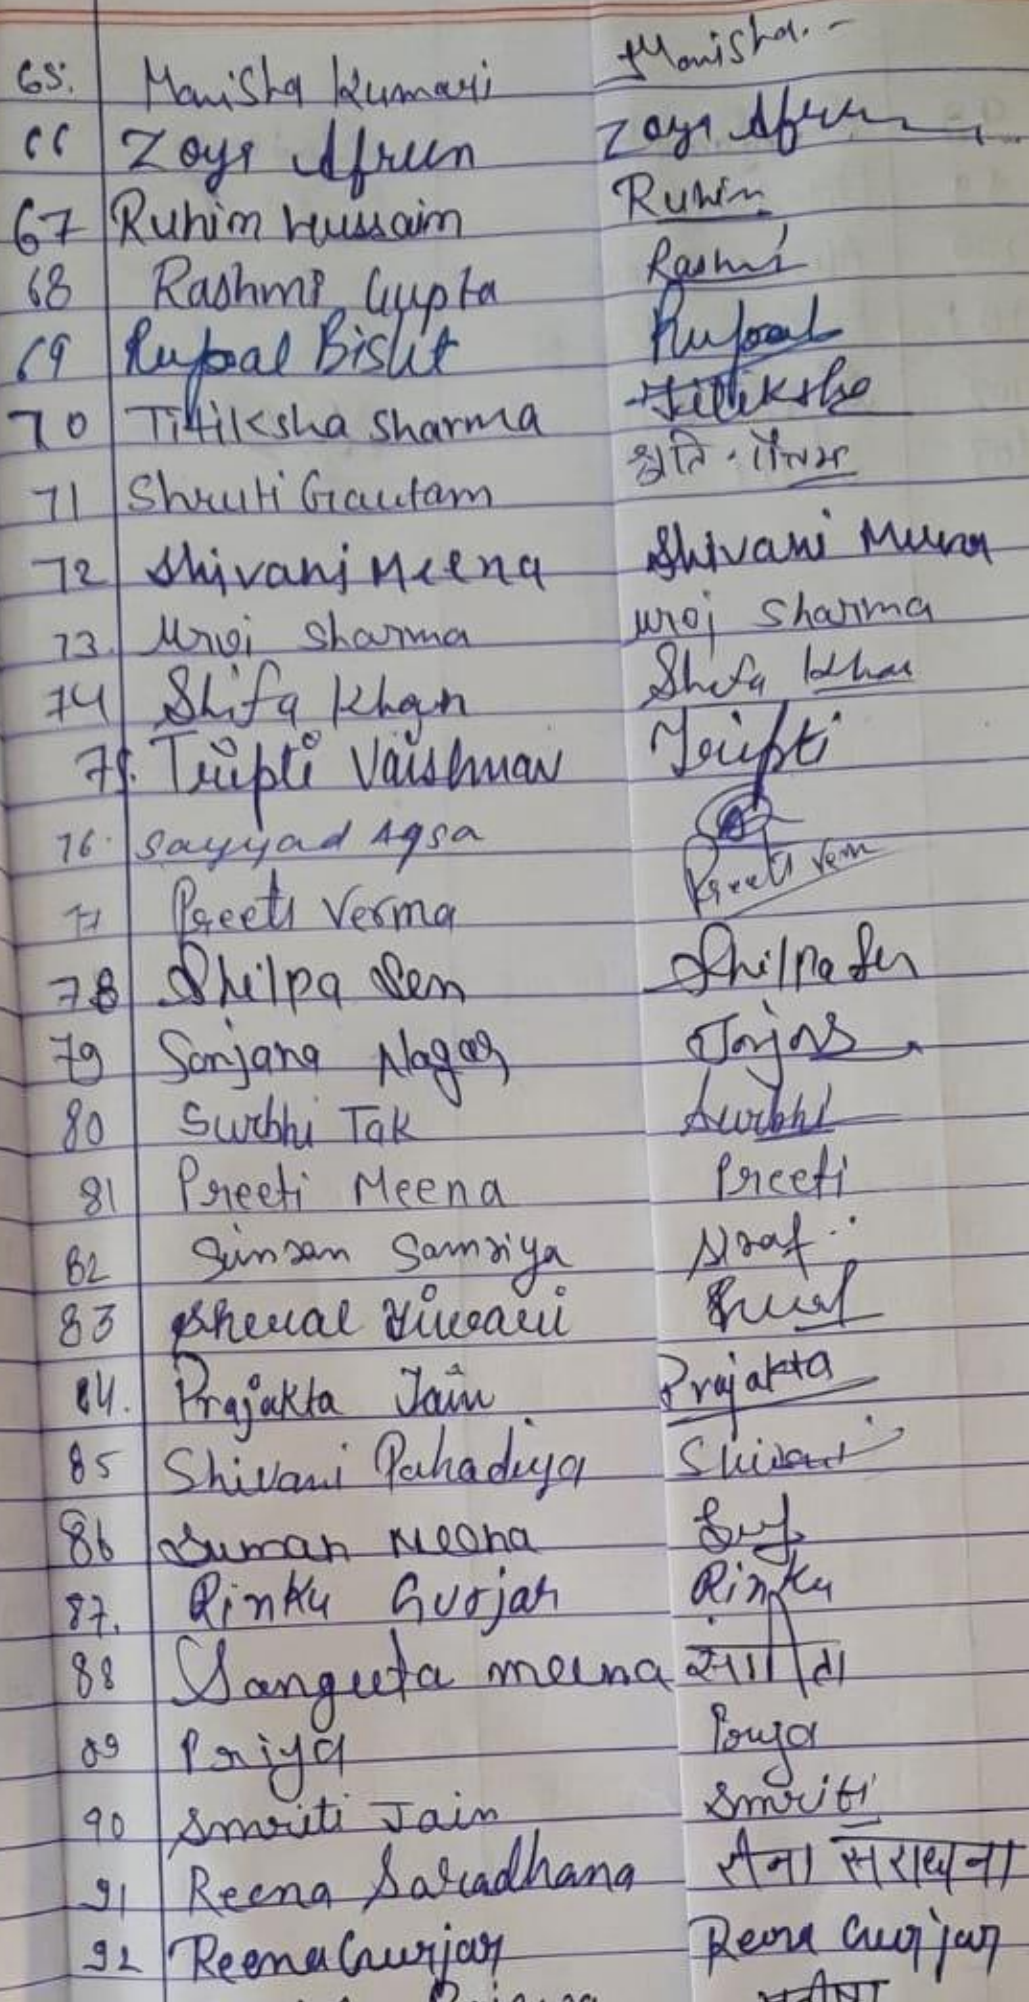 65. Manisha Kumari Manisha.
66 Zoya Afreen Zoya Afreen
67 Ruhim Hussain Ruhim
68 Rashmi Gupta Rashmi
69 Rupal Bisht Rupal
70 Titiksha Sharma Titiksha
71 Shruti Gautam श्रुति गौतम
72 Shivani Meena Shivani Meena
73. Uroj Sharma Uroj Sharma
74 Shifa Khan Shifa Khan
75. Tripti Vaishnav Tripti
76. Sayyad Aqsa
77 Preeti Verma Preeti Verma
78 Shilpa Sen Shilpa Sen
79 Sanjana Nagar
80 Surbhi Tak Surbhi
81 Preeti Meena Preeti
82 Simran Samriya
83
84. Prajakta Jain Prajakta
85 Shivani Pahadiya Shivani
86 Suman Meena
87. Rinku Gurjar Rinku
88 Sangeeta meena
89 Priya Priya
90 Smriti Jain Smriti
91 Reena Saradhana सराधना
92 Reena Gurjar Reena Gurjar